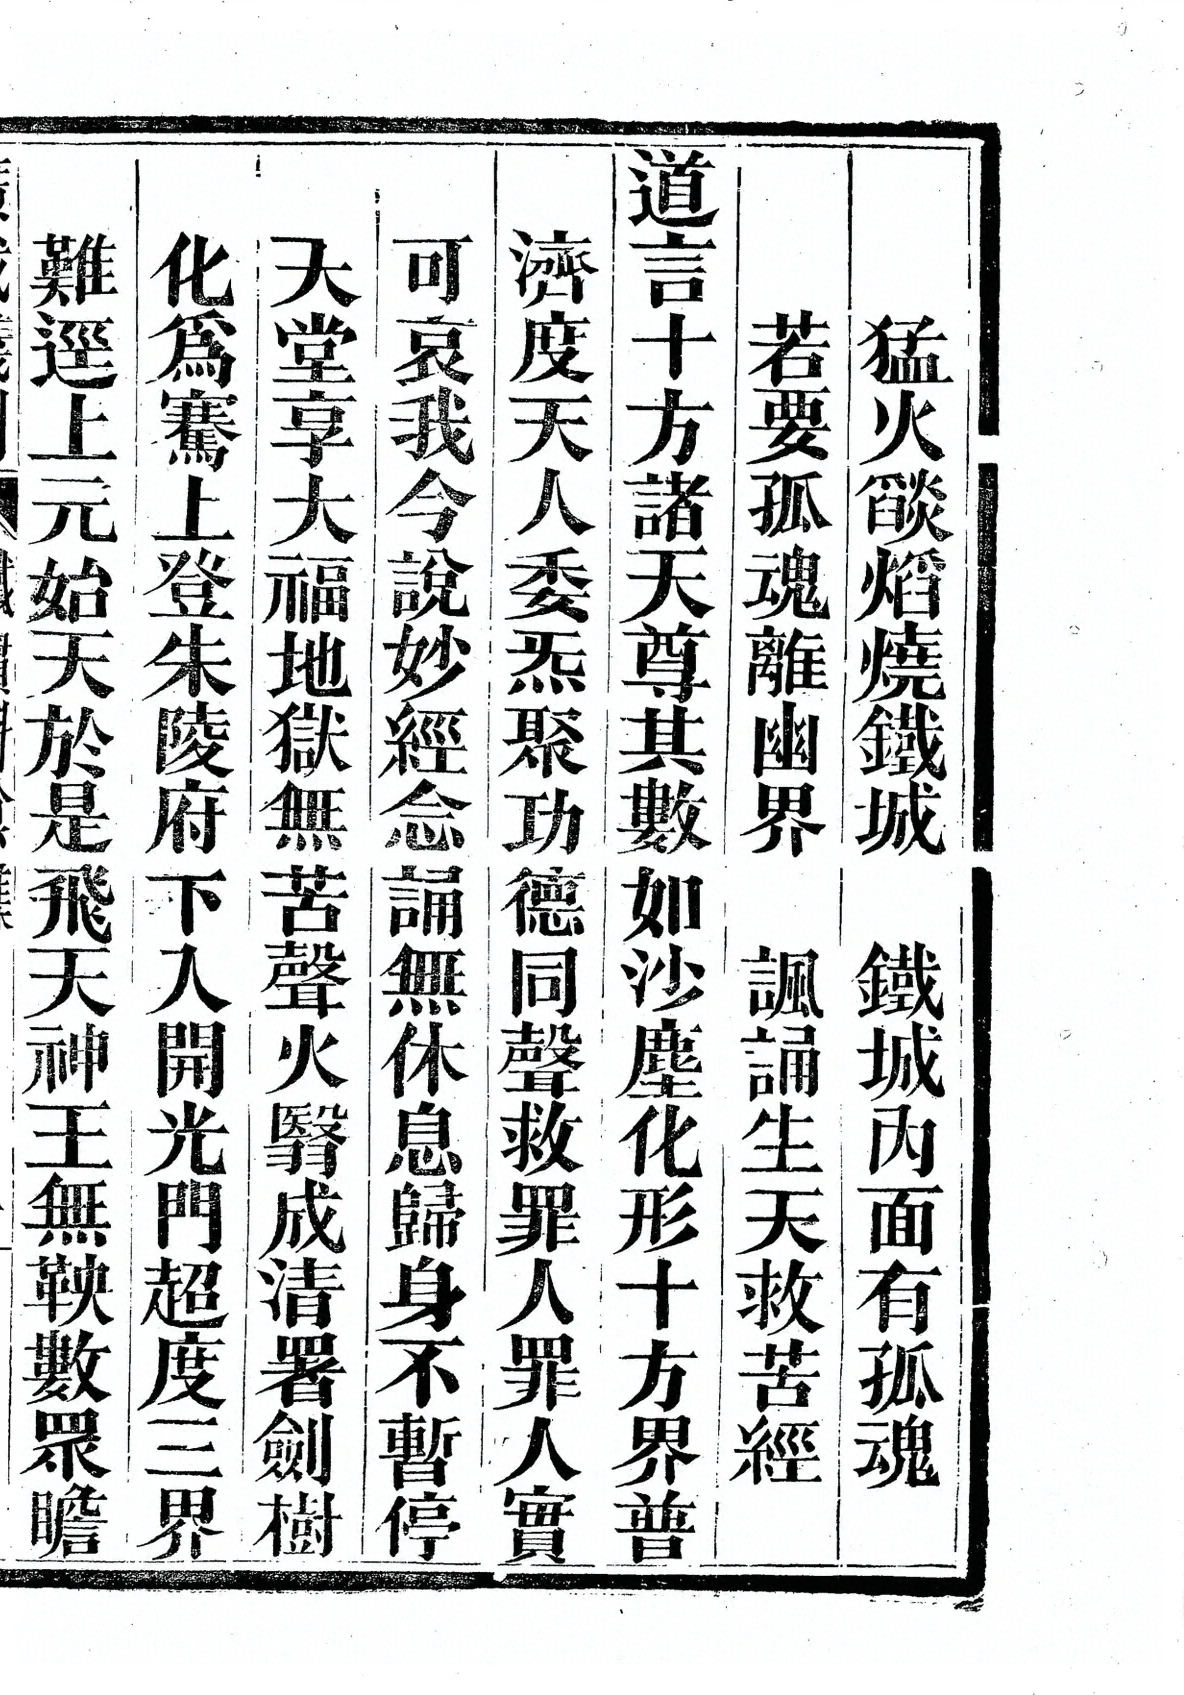 猛火燄焰燒鐵城　鐵城內面有孤魂
若要孤魂離幽界　諷誦生天救苦經
道言十方諸天尊其數如沙塵化形十方界普
濟度天人委炁聚功德同聲救罪人罪人實
可哀我今說妙經念誦無休息歸身不暫停
天堂享大福地獄無苦聲火翳成清署劍樹
化爲騫上登朱陵府下入開光門超度三界
難逕上元始天於是飛天神王無鞅數眾瞻